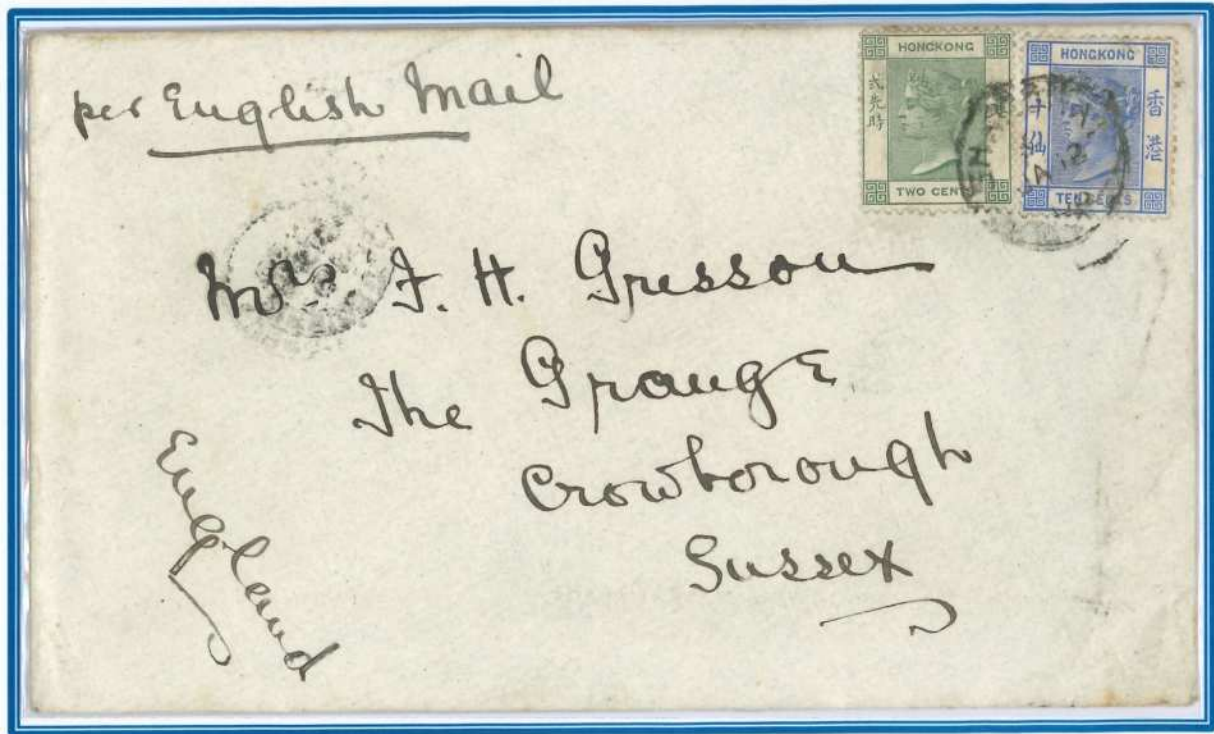 per English Mail
HONGKONG
弍先時
TWO CENTS
HONGKONG
香港
十仙
TEN CENTS
JA 12
Mrs F. H. Gresson
The Grange
Crowborough
Sussex
England